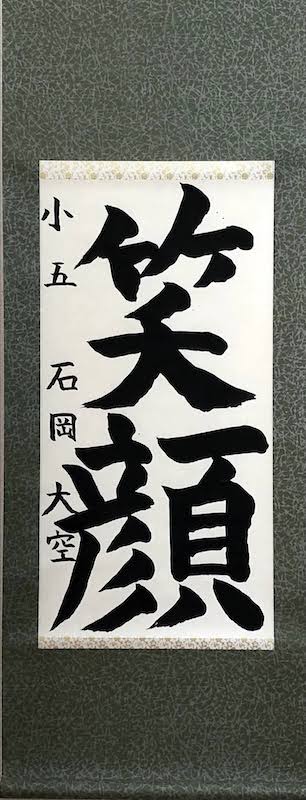 笑顔
小五 石岡 大空